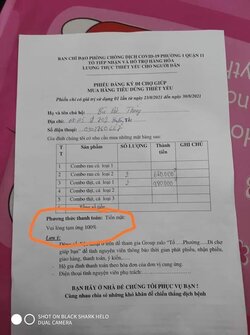 BAN CHỈ ĐẠO PHÒNG CHỐNG DỊCH COVID-19 PHƯỜNG 1 QUẬN 11
TỔ TIẾP NHẬN VÀ HỖ TRỢ HÀNG HÓA
LƯƠNG THỰC THIẾT YẾU CHO NGƯỜI DÂN
PHIẾU ĐĂNG KÝ ĐI CHỢ GIÚP
MUA HÀNG TIÊU DÙNG THIẾT YẾU
Phiếu chỉ có giá trị sử dụng 01 lần từ ngày 23/8/2021 đến ngày 30/8/2021
Họ và tên:
Địa chỉ:
Số điện thoại:
Gia đình chúng tôi có nhu cầu mua những mặt hàng sau:
TT Sản phẩm SỐ LƯỢNG Thành tiền GHI CHÚ
1 Combo rau củ. loại 1
2 Combo rau củ. loại 2
3 Combo thịt, cá. loại 1
4 Combo thịt, cá. loại 2
5 Combo thịt, cá. loại 3
Tổng số tiền
Phương thức thanh toán: Tiền mặt.
Vui lòng tạm ứng 100%
Lưu ý:
để tham gia Group zalo "Tổ ... Phường ... Đi chợ
giúp bạn" để tình nguyện viên thông báo thời gian phát phiếu, nhận phiếu,
giao hàng, thanh toán, ý kiến..
- Hộ gia đình thanh toán theo hóa đơn của đơn vị cung ứng.
- Điện thoại tình nguyện viên phụ trách:
BẠN HÃY Ở NHÀ ĐỂ CHÚNG TÔI PHỤC VỤ BẠN !
Cùng nhau chia sẻ những khó khăn để chiến thắng dịch bệnh
SHOT ON BLACK SHARK HELO
DUAL CAMERA